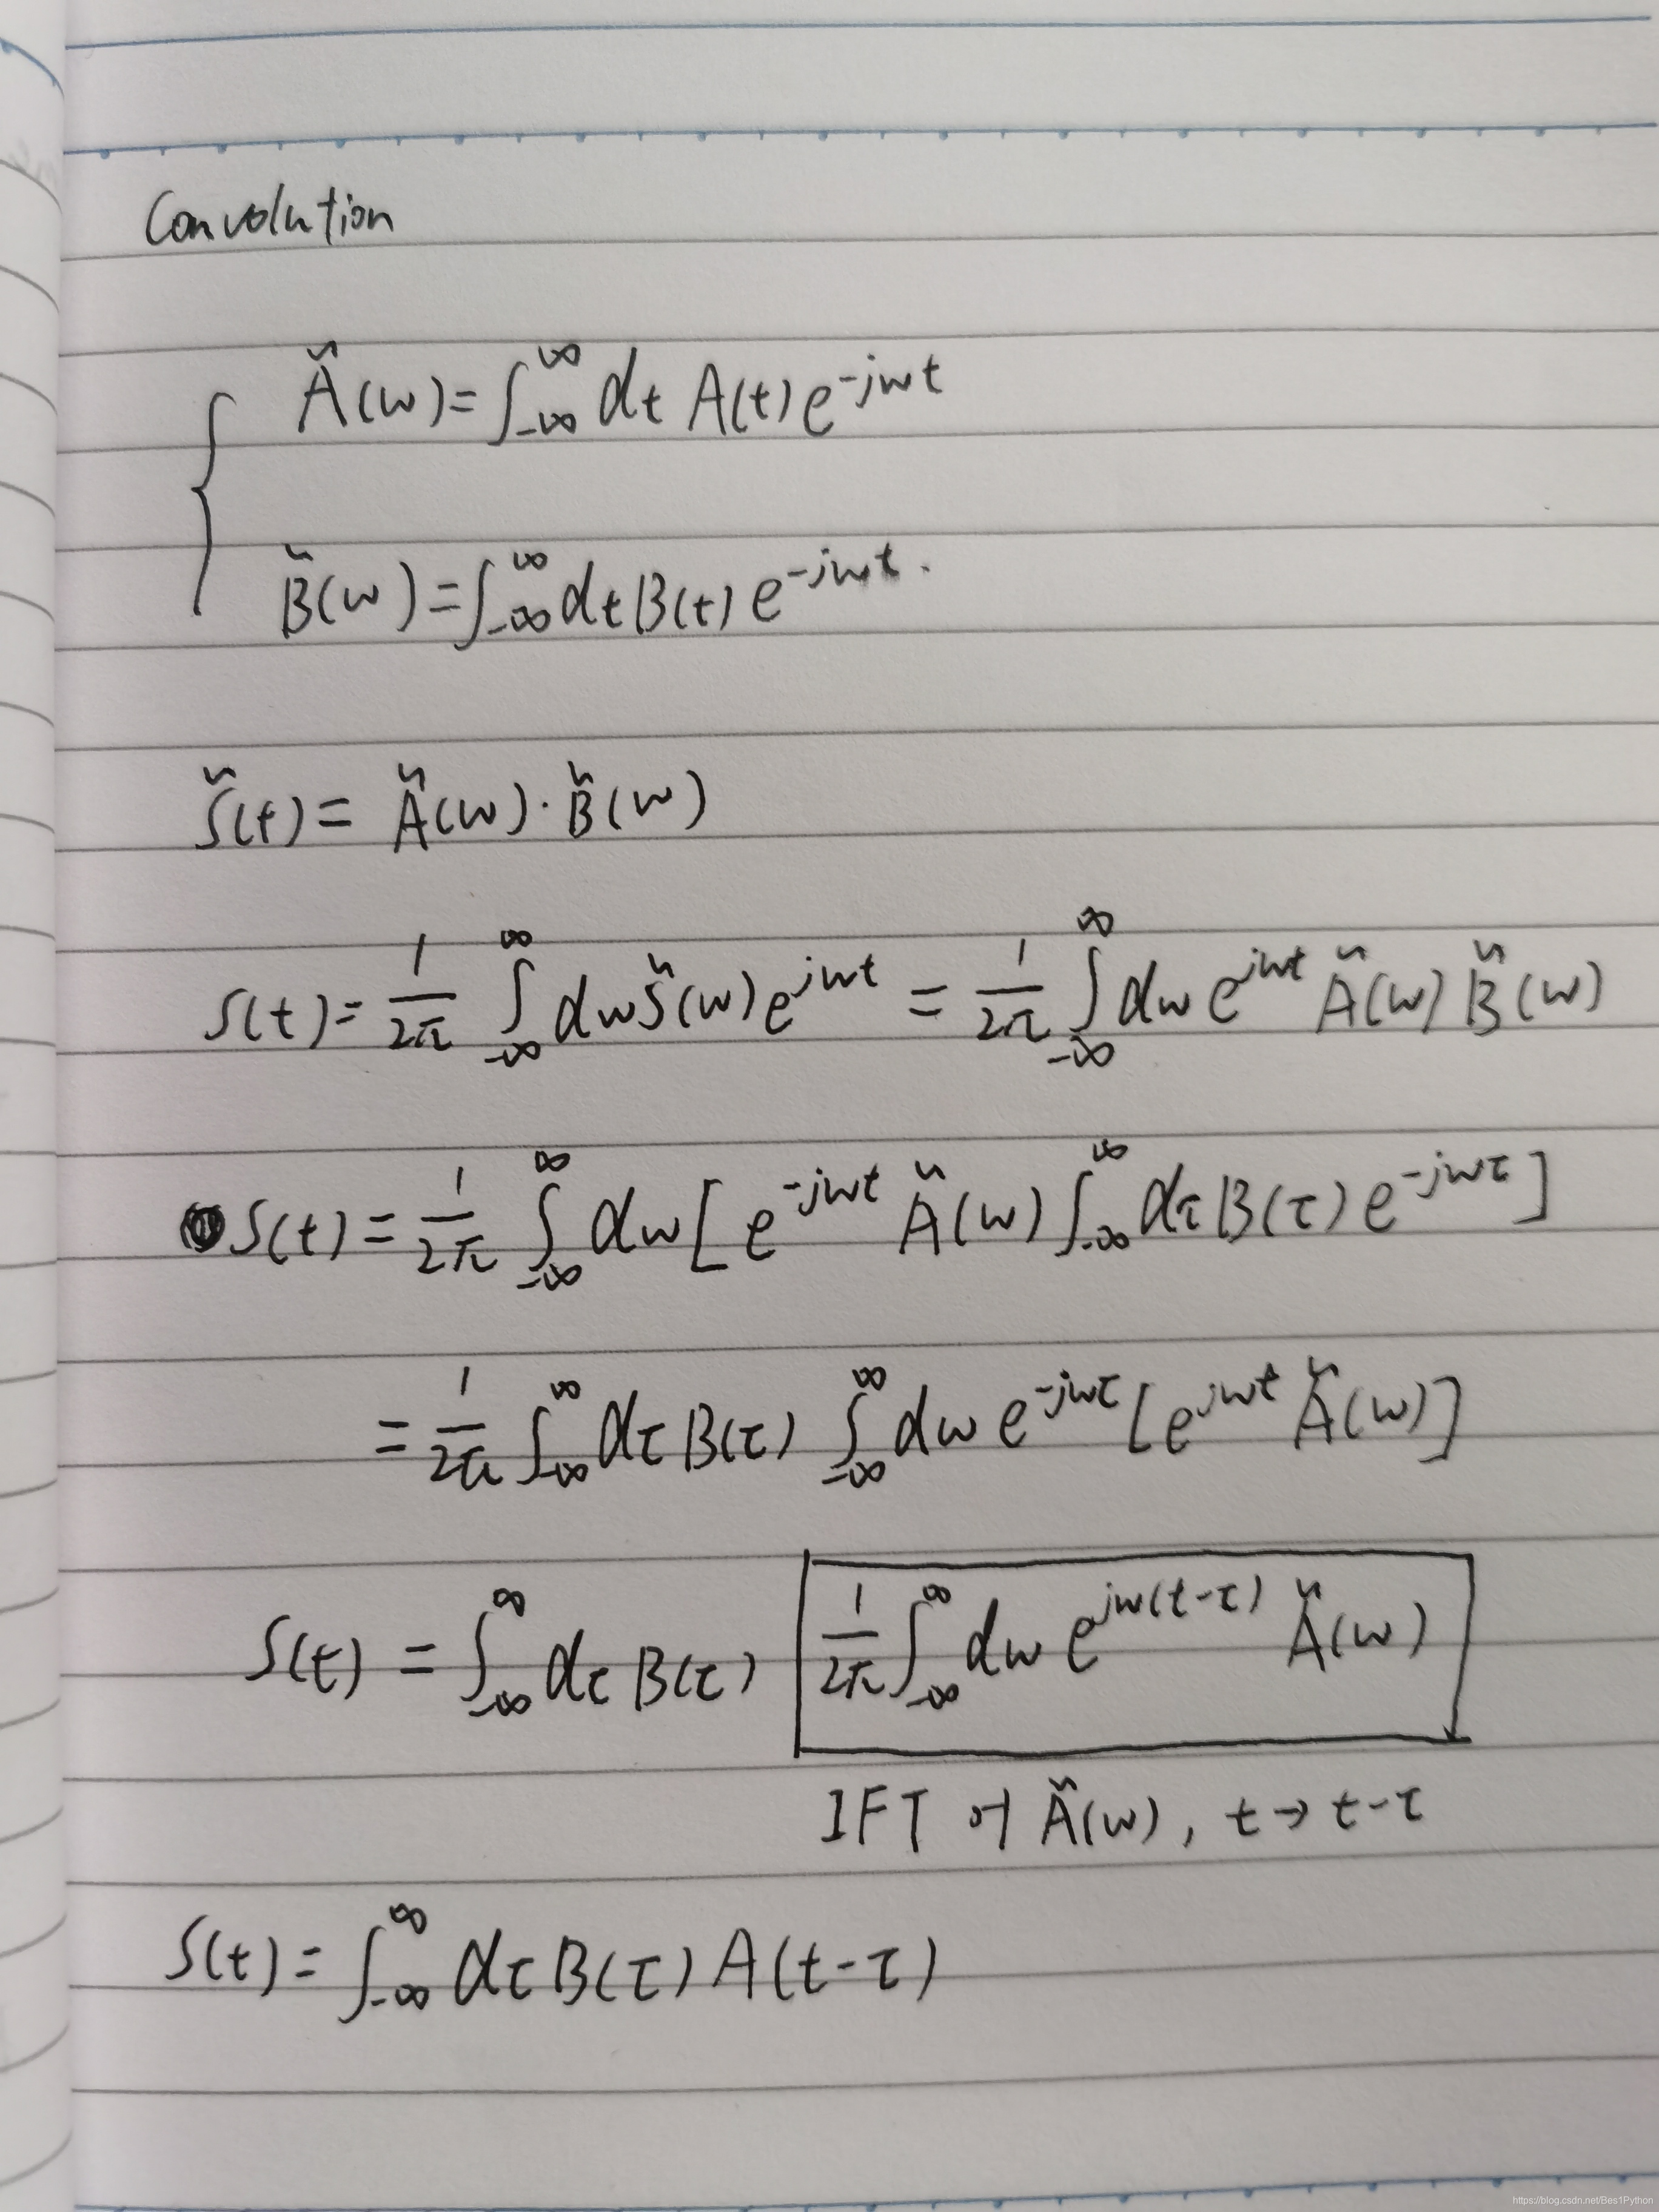 Convolution
Ã(w)=∫_{-∞}^{∞} dt A(t) e^{-jwt}
B̃(w)=∫_{-∞}^{∞} dt B(t) e^{-jwt}.
S̃(t) = Ã(w)·B̃(w)
S(t)= 1/2π ∫_{-∞}^{∞} dw S̃(w) e^{jwt} = 1/2π ∫_{-∞}^{∞} dw e^{jwt} Ã(w) B̃(w)
S(t) = 1/2π ∫_{-∞}^{∞} dw [ e^{-jwt} Ã(w) ∫_{-∞}^{∞} dτ B(τ) e^{-jwτ} ]
= 1/2π ∫_{-∞}^{∞} dτ B(τ) ∫_{-∞}^{∞} dw e^{-jwτ} [e^{jwt} Ã(w)]
S(t) = ∫_{-∞}^{∞} dτ B(τ) 1/2π ∫_{-∞}^{∞} dw e^{jw(t-τ)} Ã(w)
IFT of Ã(w), t → t-τ
S(t) = ∫_{-∞}^{∞} dτ B(τ) A(t-τ)
https://blog.csdn.net/Bes1Python